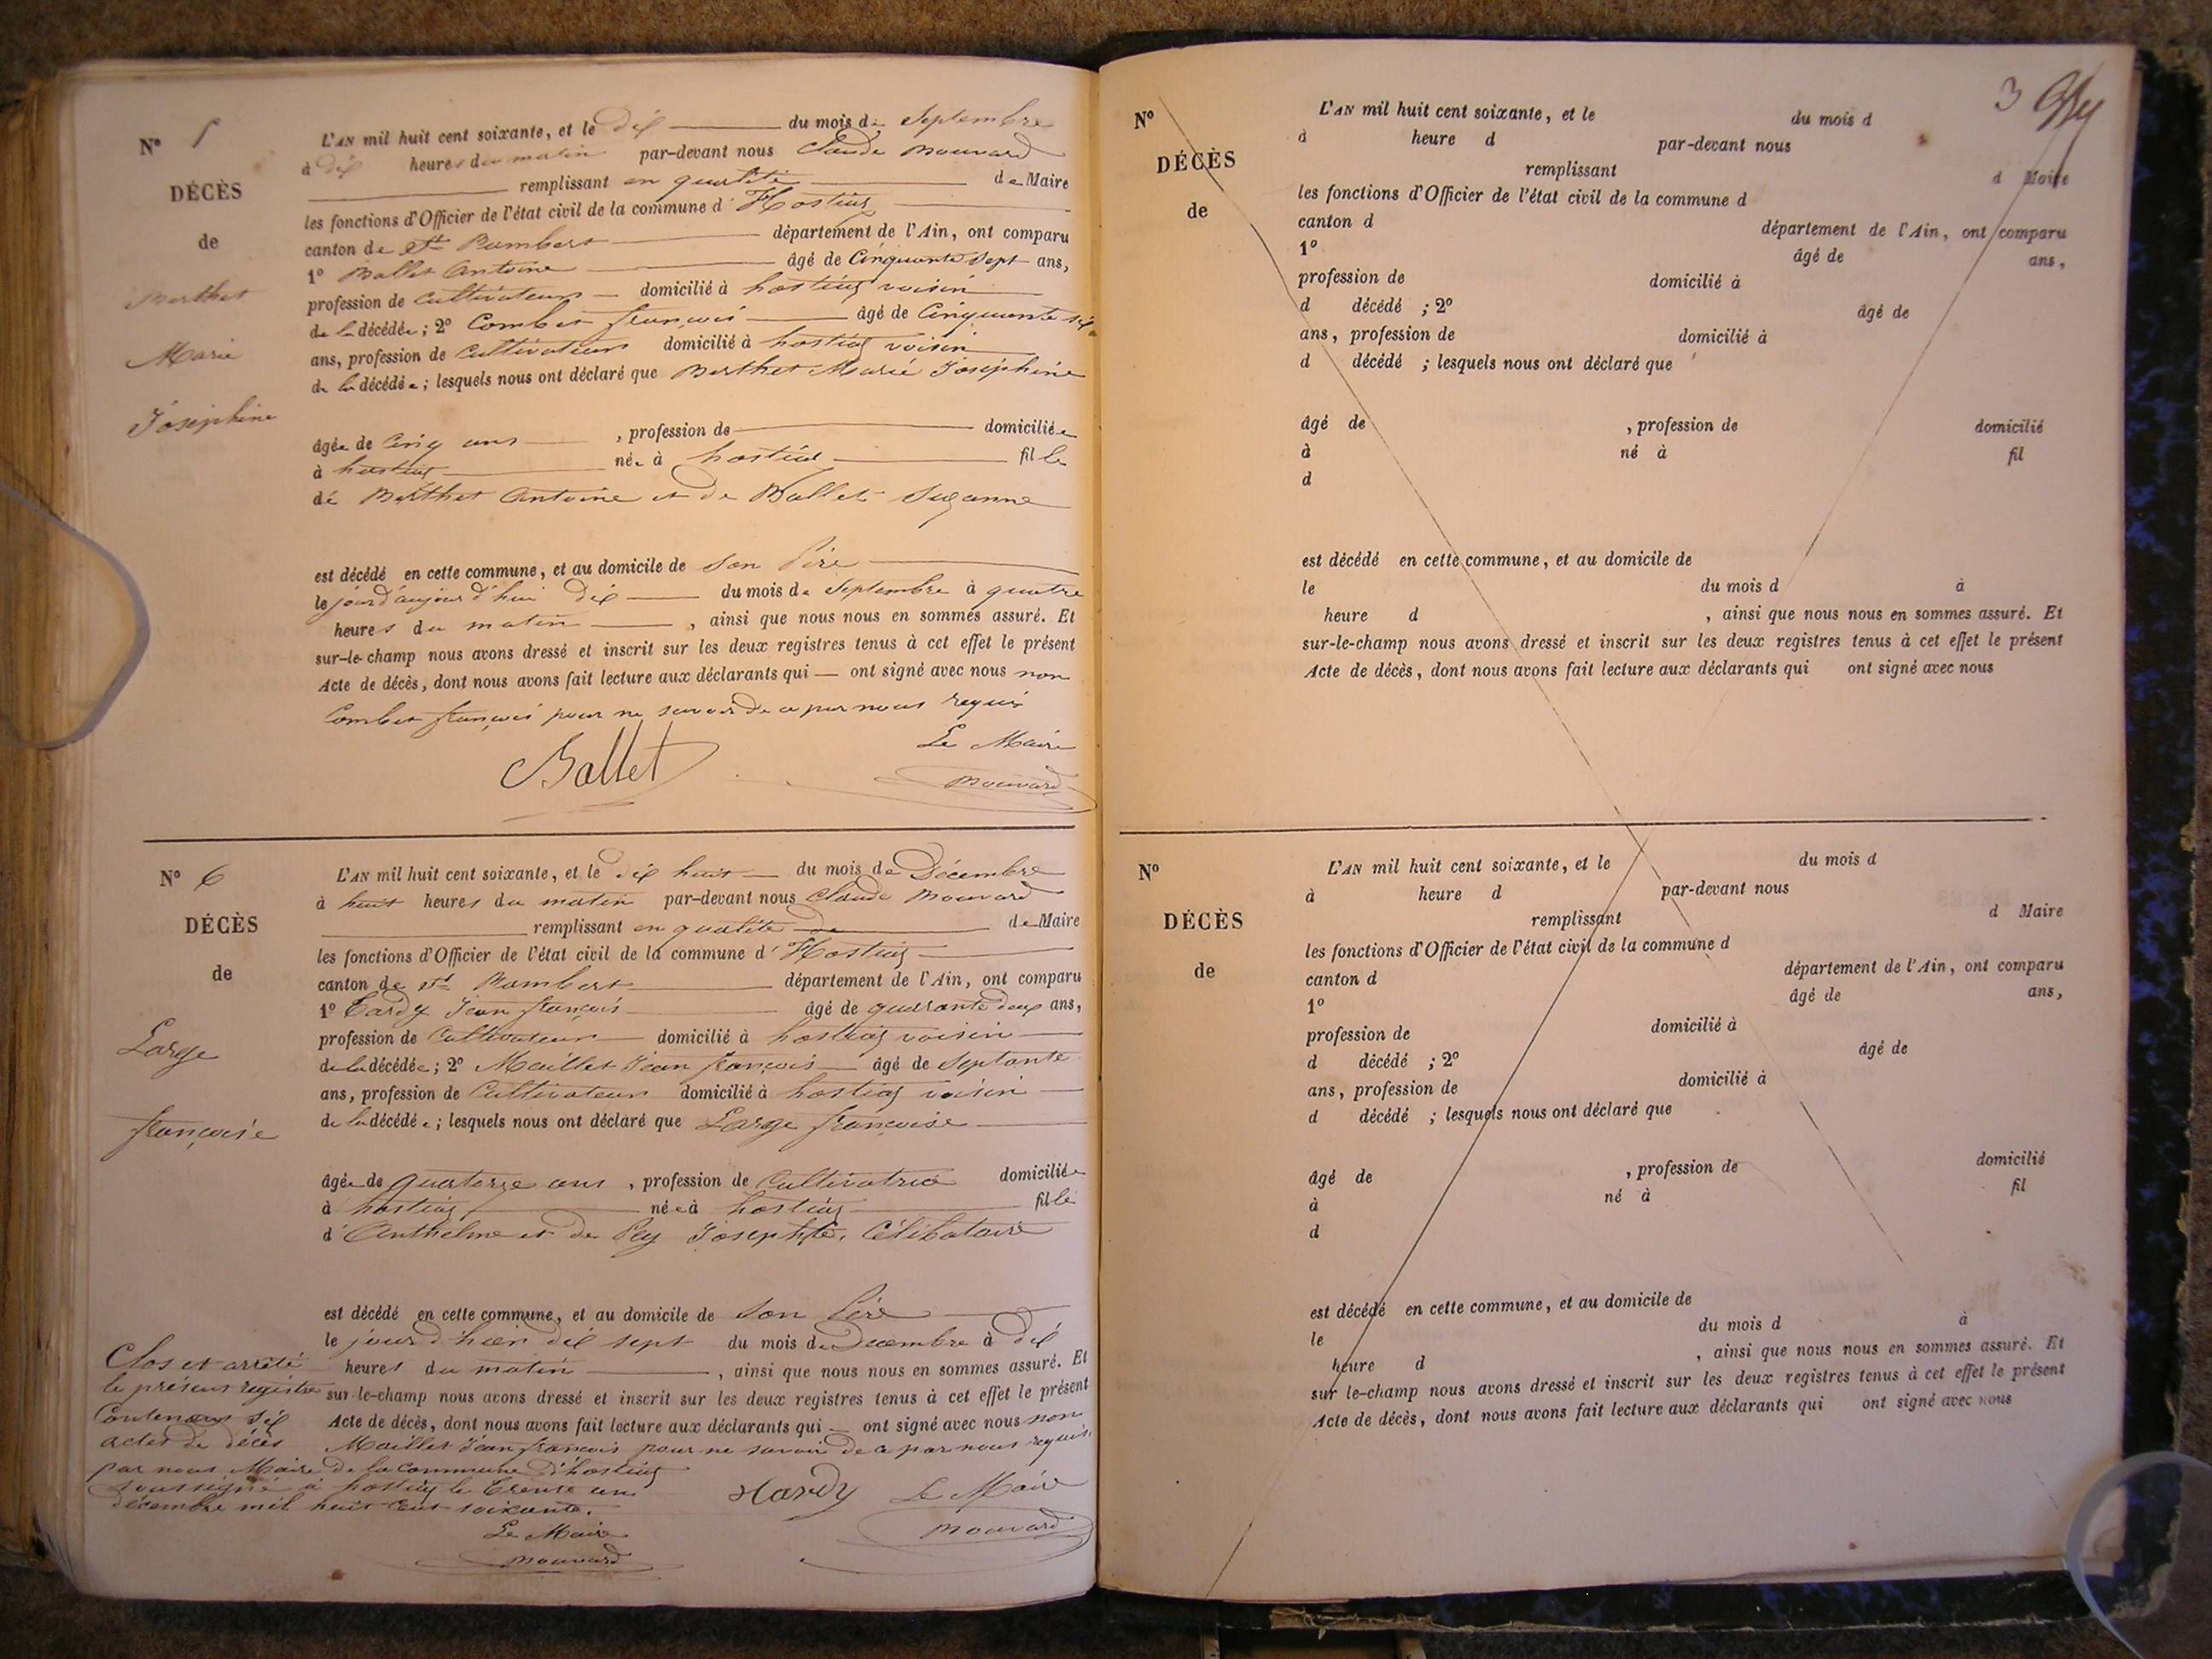 N° 5
DÉCÈS
de
Berthet
Marie
Josephine
L'AN mil huit cent soixante, et le dix du mois de Septembre
à dix heures du matin par-devant nous Claude Mouvard
remplissant en qualité de Maire
les fonctions d'Officier de l'état civil de la commune d'Hostiaz
canton de St Rambert département de l'Ain, ont comparu
1° Ballet Antoine âgé de Cinquante Sept ans,
profession de Cultivateur domicilié à hostiaz voisin
de la décédée ; 2° Combet françois âgé de Cinquante six
ans, profession de Cultivateur domicilié à hostiaz voisin
de la décédée ; lesquels nous ont déclaré que Berthet Marie Josephine
âgée de Cinq ans , profession de domiciliée
à hostiaz née à hostiaz fille
de Berthet Antoine et de Ballet Suzanne
est décédé en cette commune, et au domicile de Son Père
le jourd'aujourd'hui dix du mois de Septembre à quatre
heures du matin , ainsi que nous nous en sommes assuré. Et
sur-le-champ nous avons dressé et inscrit sur les deux registres tenus à cet effet le présent
Acte de décès, dont nous avons fait lecture aux déclarants qui ont signé avec nous non
Combet françois pour ne savoir de ce par nous requis
Le Maire
Ballet
Mouvard
N° 6
DÉCÈS
de
Large
françoise
L'AN mil huit cent soixante, et le dix huit du mois de Décembre
à huit heures du matin par-devant nous Claude Mouvard
remplissant en qualité de de Maire
les fonctions d'Officier de l'état civil de la commune d'Hostiaz
canton de St Rambert département de l'Ain, ont comparu
1° Tardy Jean françois âgé de quarante deux ans,
profession de Cultivateur domicilié à hostiaz voisin
de la décédée ; 2° Maillet Jean françois âgé de Septante
ans, profession de Cultivateur domicilié à hostiaz voisin
de la décédée ; lesquels nous ont déclaré que Large françoise
âgée de quatorze ans , profession de Cultivatrice domiciliée
à hostiaz née à hostiaz fille
d'Anthelme et de Pey Josephte, Célibataire
est décédé en cette commune, et au domicile de Son Père
le jour d'hier dix sept du mois de Decembre à dix
heures du matin , ainsi que nous nous en sommes assuré. Et
sur-le-champ nous avons dressé et inscrit sur les deux registres tenus à cet effet le présent
Acte de décès, dont nous avons fait lecture aux déclarants qui ont signé avec nous non
Maillet Jean françois pour ne savoir de ce par nous requis
Tardy Le Maire
Mouvard
Clos et arrêté
le présent registre
Contenant six
actes de décès
par nous Maire de la commune d'hostiaz
soussigné à hostiaz le trente un
décembre mil huit cent soixante.
Le Maire
Mouvard
3
N°
DÉCÈS
de
L'AN mil huit cent soixante, et le du mois d
à heure d par-devant nous
remplissant d Maire
les fonctions d'Officier de l'état civil de la commune d
canton d département de l'Ain, ont comparu
1° âgé de ans,
profession de domicilié à
d décédé ; 2° âgé de
ans, profession de domicilié à
d décédé ; lesquels nous ont déclaré que
âgé de , profession de domicilié
à né à fil
d
est décédé en cette commune, et au domicile de
le du mois d à
heure d , ainsi que nous nous en sommes assuré. Et
sur-le-champ nous avons dressé et inscrit sur les deux registres tenus à cet effet le présent
Acte de décès, dont nous avons fait lecture aux déclarants qui ont signé avec nous
N°
DÉCÈS
de
L'AN mil huit cent soixante, et le du mois d
à heure d par-devant nous
remplissant d Maire
les fonctions d'Officier de l'état civil de la commune d
canton d département de l'Ain, ont comparu
1° âgé de ans,
profession de domicilié à
d décédé ; 2° âgé de
ans, profession de domicilié à
d décédé ; lesquels nous ont déclaré que
âgé de , profession de domicilié
à né à fil
d
est décédé en cette commune, et au domicile de
le du mois d à
heure d , ainsi que nous nous en sommes assuré. Et
sur le-champ nous avons dressé et inscrit sur les deux registres tenus à cet effet le présent
Acte de décès, dont nous avons fait lecture aux déclarants qui ont signé avec nous